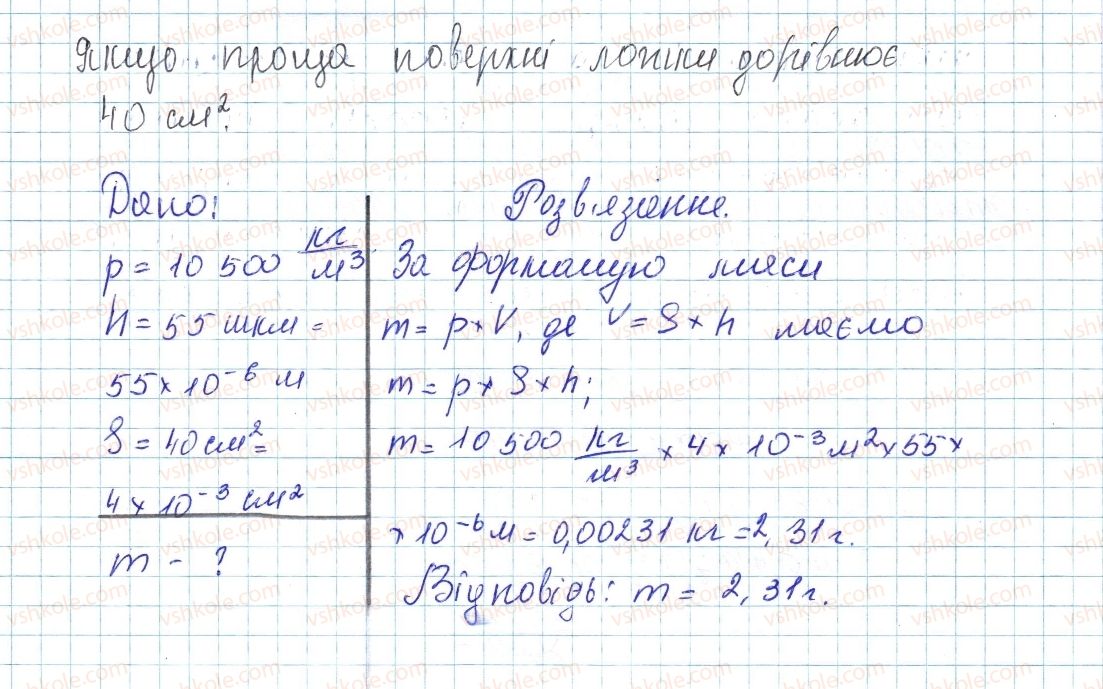 Якщо площа поверхні ложки дорівнює
40 см².
Дано:
р = 10 500 кг/м³
h = 55 мкм =
55 × 10⁻⁶ м
S = 40 см² =
4 × 10⁻³ см²
m - ?
Розв'язання.
За формулую маси
m = p × V, де V = S × h маємо
m = p × S × h;
m = 10 500 кг/м³ × 4 × 10⁻³ м² × 55 ×
× 10⁻⁶ м = 0,00231 кг = 2,31 г.
Відповідь: m = 2,31 г.
vshkole.com